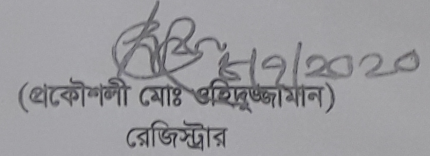 ৮/৭/২০২০
(প্রকৌশলী মোঃ ওহিদুজ্জামান)
রেজিস্ট্রার